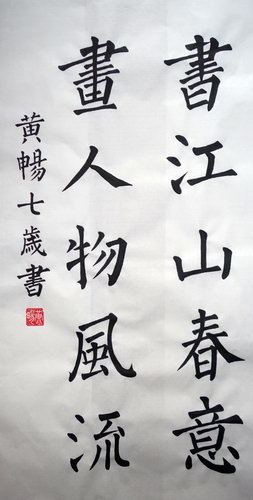 書江山春意
畫人物風流
黃暢七歲書